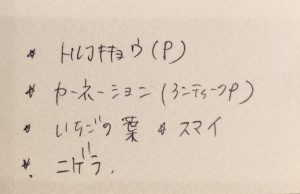 * トルコキキョウ(P)
* カーネーション(アンティークP)
* いちごの葉 * スマイ
* ニゲラ.